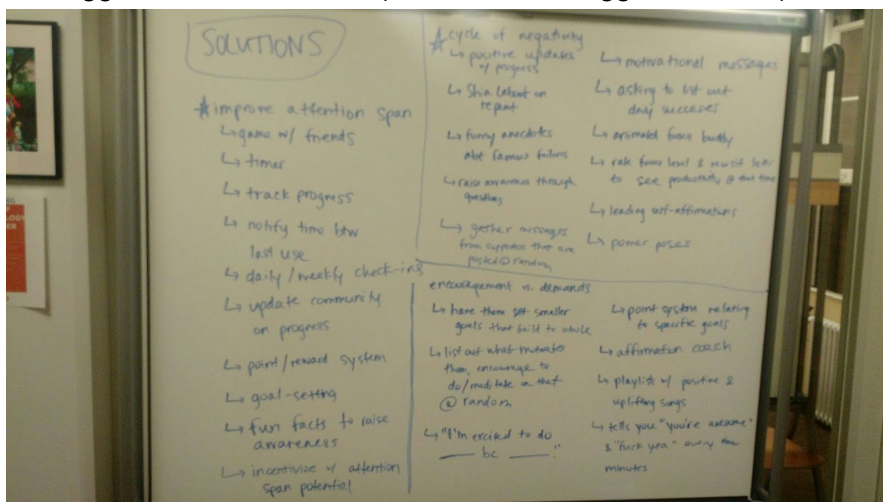 SOLUTIONS
improve attention span
↳ game w/ friends
↳ timer
↳ track progress
↳ notify time btw
last use
↳ daily/weekly check-ins
↳ update community
on progress
↳ point/reward system
↳ goal-setting
↳ fun facts to raise
awareness
↳ incentivize w/ attention
span potential
cycle of negativity
↳ positive updates
w/ progress
↳ Shia Labeouf on
repeat
↳ funny anecdotes
abt famous failures
↳ raise awareness through
questions
↳ gather messages
from supporters that are
posted @ random
↳ motivational messages
↳ asking to list out
daily successes
↳ animated focus buddy
↳ rate focus level & revisit later
to see productivity @ that time
↳ leading self-affirmations
↳ power poses
encouragement vs. demands
↳ have them set smaller
goals that build to whole
↳ list out what motivates
them, encourage to
do/meditate on that
@ random
↳ "I'm excited to do
____ bc ____!"
↳ point system relating
to specific goals
↳ affirmation coach
↳ playlist w/ positive &
uplifting songs
↳ tells you "you're awesome"
& "fuck yea" every few
minutes